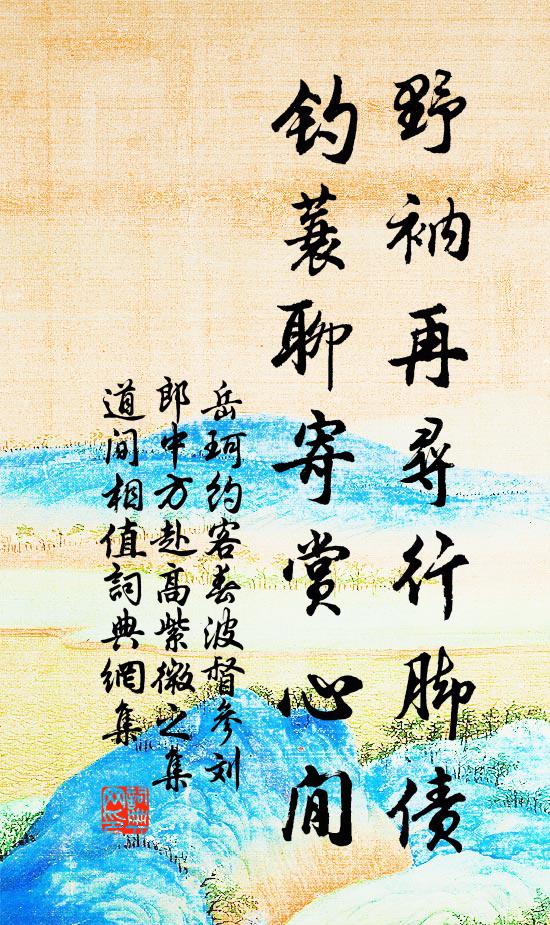 野衲再尋行脚債
钓蓑聊寄赏心閒
岳珂约客春波督参刘
郎中方赴高紫微之集
道间相值詞典網集